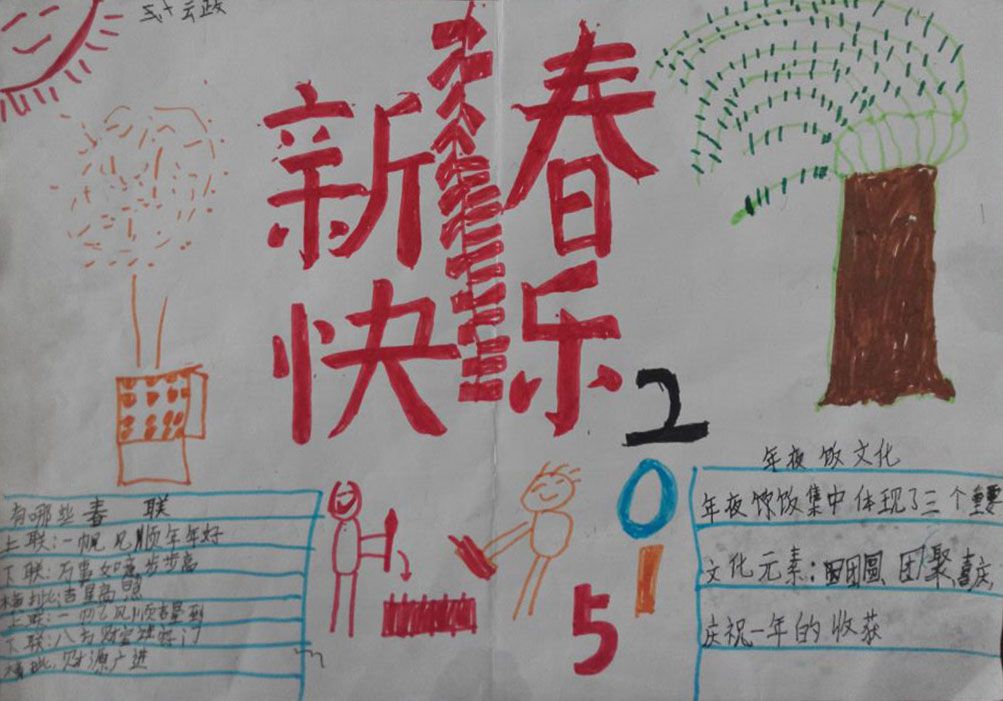 新春
快乐
2
0
1
5
有哪些春联
上联:一帆风顺年年好
下联:万事如意步步高
横批:吉星高照
上联:一帆风顺吉星到
下联:八方财宝进门
横批:财源广进
年夜饭文化
年夜饭集中体现了三个重要
文化元素:团圆 团聚喜庆
庆祝一年的收获